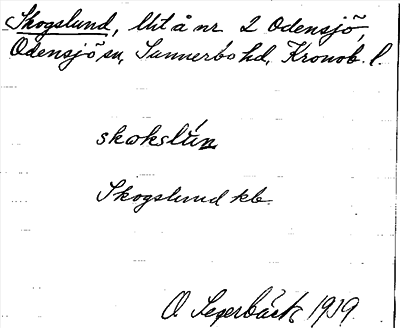 Skogslund, lht å nr 2 Odensjö,
Odensjö sn, Sunnerbo hd, Kronob. l.
skokslún
Skogslund kb.
O Segerbäck 1919.